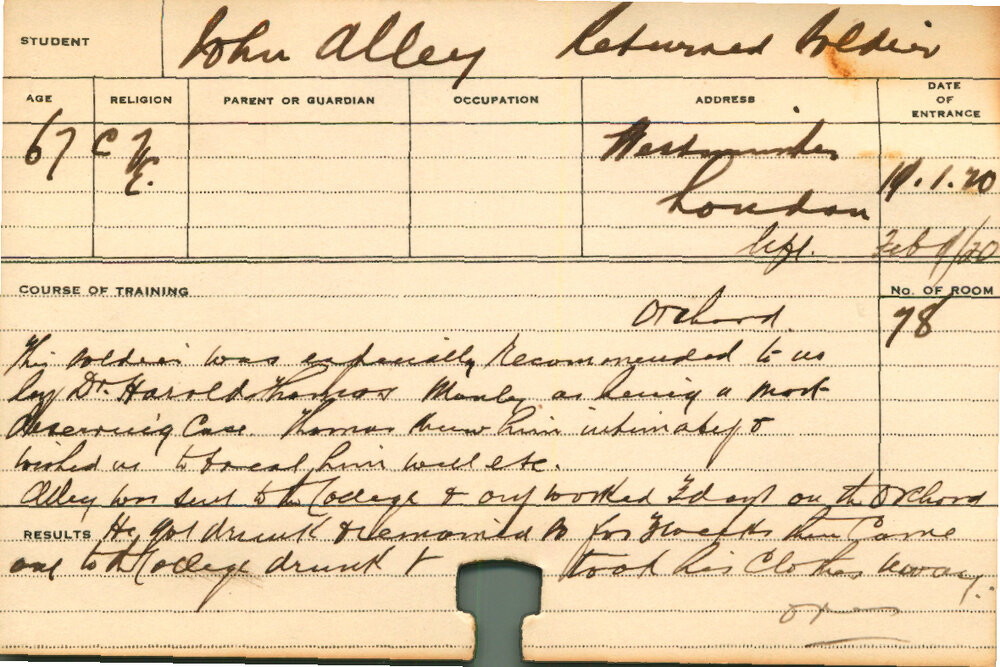 STUDENT John Alley Returned Soldier
AGE RELIGION PARENT OR GUARDIAN OCCUPATION ADDRESS DATE OF ENTRANCE
67 C of E. Westminster
London 19.1.20
left. Feb 9/20
COURSE OF TRAINING No. OF ROOM
Orchard. 78
This soldier was especially recommended to us
by Dr. Harold Thomas Manly as being a most
deserving case. Thomas knew him intimately &
wished us to treat him well etc.
Alley was sent to the College & only worked 7 days on the Orchard
RESULTS He got drunk & remained so for 2 weeks then came
out to the College drunk & took his clothes away.